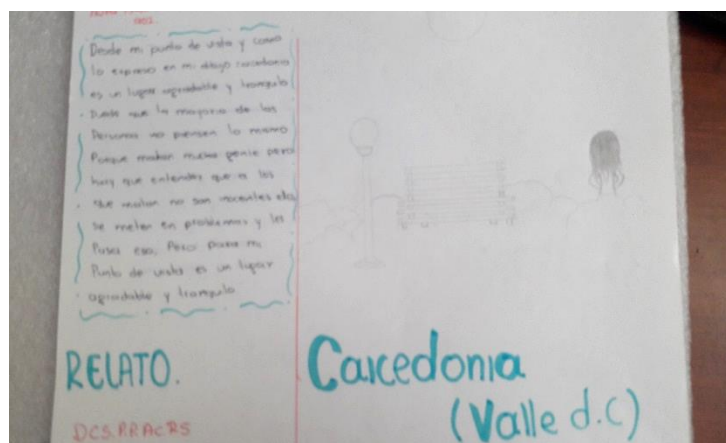 Desde mi punto de vista y como
lo expreso en mi dibujo caicedonia
es un lugar agradable y tranquilo
Puede que la mayoria de las
Persona no piensen lo mismo
Porque matan mucha gente pero
hay que entender que a los
que matan no son inocentes ellos
se meten en problemas y les
Pasa eso, Pero para mi
Punto de vista es un lugar
agradable y tranquilo
RELATO.
Caicedonia
(Valle d.C)